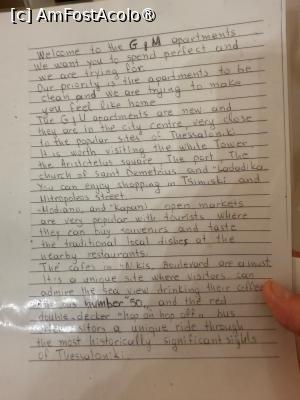 [c] AmFostAcolo®
Welcome to the G & M apartments
We want you to spend perfect and
we are trying for.
Our priority is the apartments to be
clean and we are trying to make
you feel like home
The G & M apartments are new and
they are in the city centre very close
to the popular sites of Thessaloniki
It is worth visiting the White Tower,
the Aristotelus square, The port, The
church of saint Demetrius and "Ladadika
You can enjoy shopping in Tsimiski and
Mitropoleos street.
"Modiano" and "Kapani" open markets
are very popular with tourists where
they can buy souvenirs and taste
the traditional local dishes at the
nearby restaurants.
The cafes in Nikis Boulevard are a must
It is a unique site where visitors can
admire the sea view drinking their coffee
bus number "50" and the red
double-decker "hop on hop off" bus
visitors a unique ride through
the most historically significant sights
of Thessaloniki.